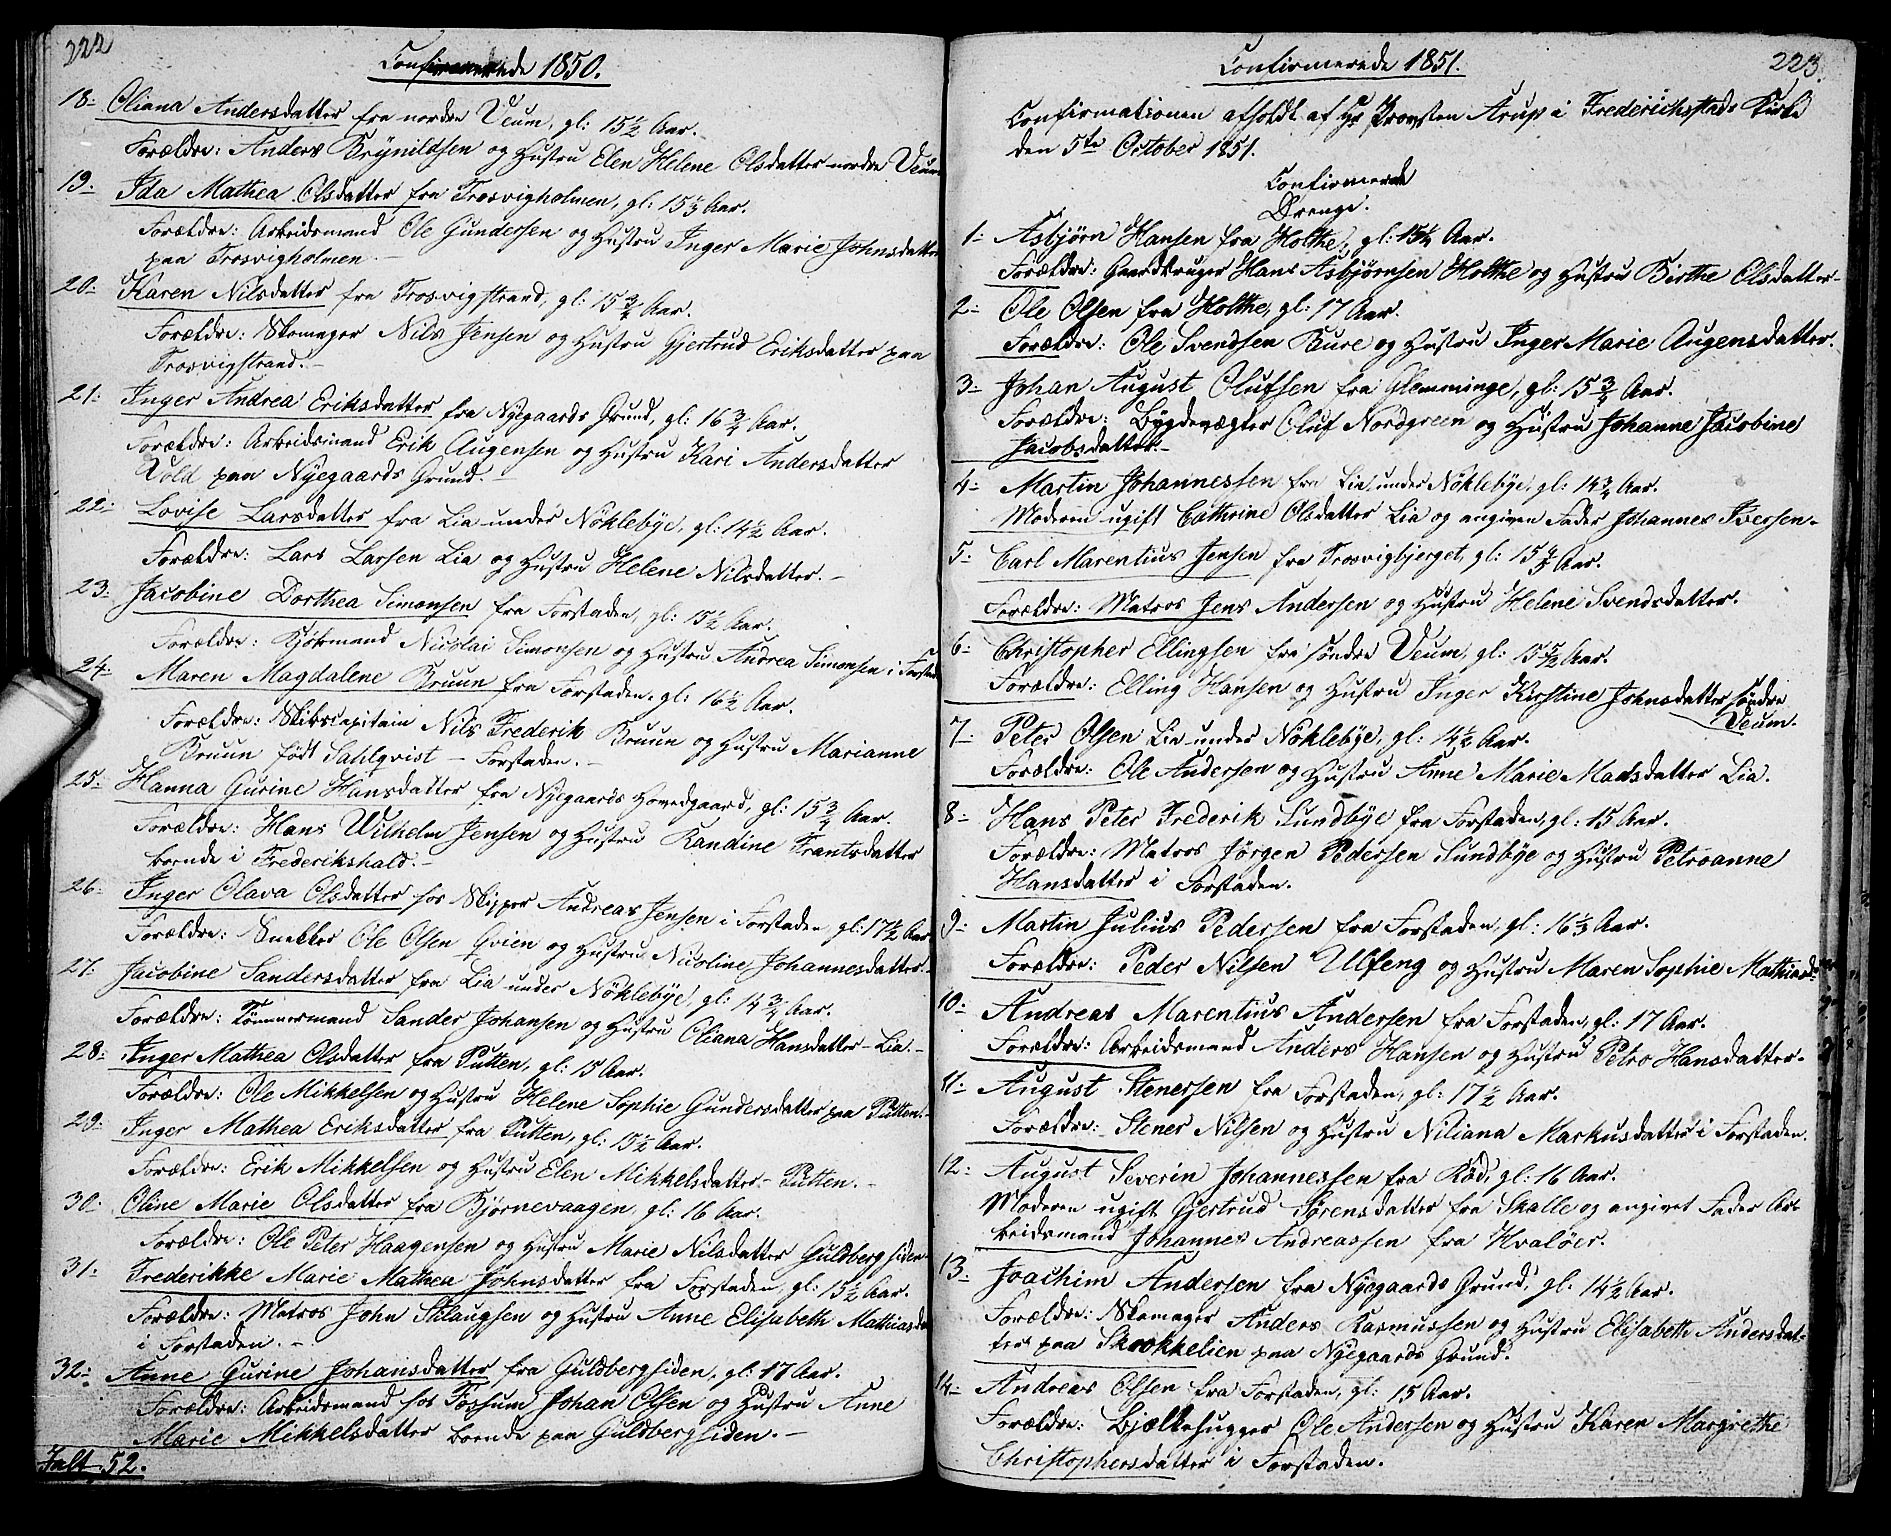 222
Confirmerede 1850.
18. Oliana Andersdatter fra nordre Veum, gl: 15½ Aar.
Forældre: Anders Brynildsen og Hustru Elen Helene Olsdatter nordre Veum
19. Ida Mathea Olsdatter fra Trosvigholmen, gl: 15⅓ Aar.
Forældre: Arbeidsmand Ole Gundersen og Hustru Inger Marie Johnsdatter
paa Trosvigholmen.
20. Karen Nilsdatter fra Trosvigstrand, gl: 15¾ Aar.
Forældre: Skomager Nils Jensen og Hustru Gjertrud Eriksdatter paa
Trosvigstrand.
21. Inger Andrea Eriksdatter fra Nyegaards Grund, gl: 16¾ Aar.
Forældre: Arbeidsmand Erik Augensen og Hustru Kari Andersdatter
Vold paa Nyegaards Grund.
22. Lovise Larsdatter fra Lia under Nöklebye, gl: 14½ Aar.
Forældre: Lars Larsen Lia og Hustru Helene Nilsdatter.
23. Jacobine Dorthea Simonsen fra Forstaden, gl: 15½ Aar.
Forældre: Kjøbmand Nicolai Simonsen og Hustru Andrea Simonsen i Forstad
24. Maren Magdalene Bruun fra Forstaden, gl: 16½ Aar.
Forældre: Skibscapitain Nils Frederik Bruun og Hustru Marianne
Bruun født Sahlqvist - Forstaden.
25. Hanna Gurine Hansdatter fra Nyegaards Hovedgaard, gl: 15¾ Aar.
Forældre: Hans Wilhelm Jensen og Hustru Randine Frantsdatter
boende i Frederikshald.
26. Inger Olava Olsdatter hos Skipper Andreas Jensen i Forstaden, gl: 17½ Aar
Forældre: Snekker Ole Olsen Qvien og Hustru Nicoline Johannesdatter.
27. Jacobine Sandersdatter fra Lia under Nöklebye, gl: 14¾ Aar.
Forældre: Tömmermand Sander Johansen og Hustru Oliana Hansdatter - Lia.
28. Inger Mathea Olsdatter fra Putten, gl: 15 Aar.
Forældre: Ole Mikkelsen og Hustru Helene Sophie Gundersdatter paa Putten.
29. Inger Mathea Eriksdatter fra Putten, gl: 15½ Aar.
Forældre: Erik Mikkelsen og Hustru Elen Mikkelsdatter - Putten.
30. Oline Marie Olsdatter fra Bjørnevaagen, gl: 16 Aar.
Forældre: Ole Peter Haagensen og Hustru Marie Nilsdatter Guldbergsiden
31. Frederikke Marie Mathea Johnsdatter fra Forstaden, gl: 15½ Aar.
Forældre: Matros John Stilaugsen og Hustru Anne Elisabeth Mathiasda
i Forstaden.
32. Anne Gurine Johansdatter fra Guldbergsiden, gl: 17 Aar.
Forældre: Arbeidsmand hos Fossum Johan Olsen og Hustru Anne
Marie Mikkelsdatter boende paa Guldbergsiden.
Ialt 52.
223.
Confirmerede 1851.
Confirmationen afholdt af Hr Provsten Arup i Frederichsstads Kirke
den 5te October 1851.
Confirmerede
Drenge.
1. Asbjørn Hansen fra Holthe, gl: 15¼ Aar.
Forældre: Gaardbruger Hans Asbjørnsen Holthe og Hustru Birthe Olsdatter
2. Ole Olsen fra Holthe, gl: 17 Aar.
Forældre: Ole Svendsen Bure og Hustru Inger Marie Augensdatter.
3. Johan August Olufsen fra Glemminge, gl: 15¾ Aar.
Forældre: Bygdevægter Oluf Nordgreen og Hustru Johanne Jacobine
Jacobsdatter.
4. Martin Johannessen fra Lia under Nöklebye, gl: 14¾ Aar.
Moderen ugift Cathrine Olsdatter Lia og angiven Fader Johannes Iversen
5. Carl Marentius Jensen fra Trosvigbjerget, gl: 15 Aar.
Forældre: Matros Jens Andersen og Hustru Helene Svendsdatter.
6. Christopher Ellingsen fra søndre Veum, gl: 15½ Aar.
Forældre: Elling Hansen og Hustru Inger Kirstine Johnsdatter søndre
Veum.
7. Peter Olsen Lia under Nöklebye, gl: 14½ Aar.
Forældre: Ole Andersen og Hustru Anne Marie Madsdatter Lia.
8. Hans Peter Frederik Sundbye fra Forstaden, gl: 15 Aar.
Forældre: Matros Jørgen Pedersen Sundbye og Hustru Petroanne
Hansdatter i Forstaden.
9. Martin Julius Pedersen fra Forstaden, gl: 16⅓ Aar.
Forældre: Peder Nilsen Ulfeng og Hustru Maren Sophie Mathiasd:
10. Andreas Marentius Andersen fra Forstaden, gl: 17 Aar.
Forældre: Arbeidsmand Anders Hansen og Hustru Petro Hansdatter
11. August Stenersen fra Forstaden, gl: 17½ Aar.
Forældre: Stener Nilsen og Hustru Niliana Markusdatter i Forstaden.
12. August Severin Johannessen fra Röd, gl: 16 Aar.
Moderen ugift Gjertrud Sørensdatter fra Skalle og angivet Fader Ar-
beidsmand Johannes Andreassen fra Hvaløer.
13. Joachim Andersen fra Nyegaards Grund, gl: 14½ Aar.
Forældre: Skomager Anders Rasmussen og Hustru Elisabeth Andersdat-
ter paa Skrokkelien paa Nyegaards Grund.
14. Andreas Olsen fra Forstaden, gl: 15 Aar.
Forældre: Bjælkehugger Ole Andersen og Hustru Karen Margrethe
Christophersdatter i Forstaden.